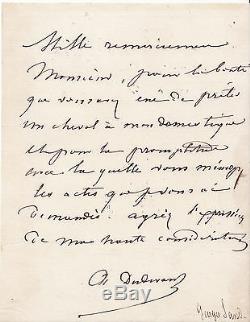 Mille remerciemens
Monsieur, pour la bonté
que vous avez eue de prêter
un cheval à mon domestique
et pour la promptitude
avec laquelle vous m'
les actes que je vous ai
demandés agréez l'expression
de ma haute considération
A Dudevant
George Sand